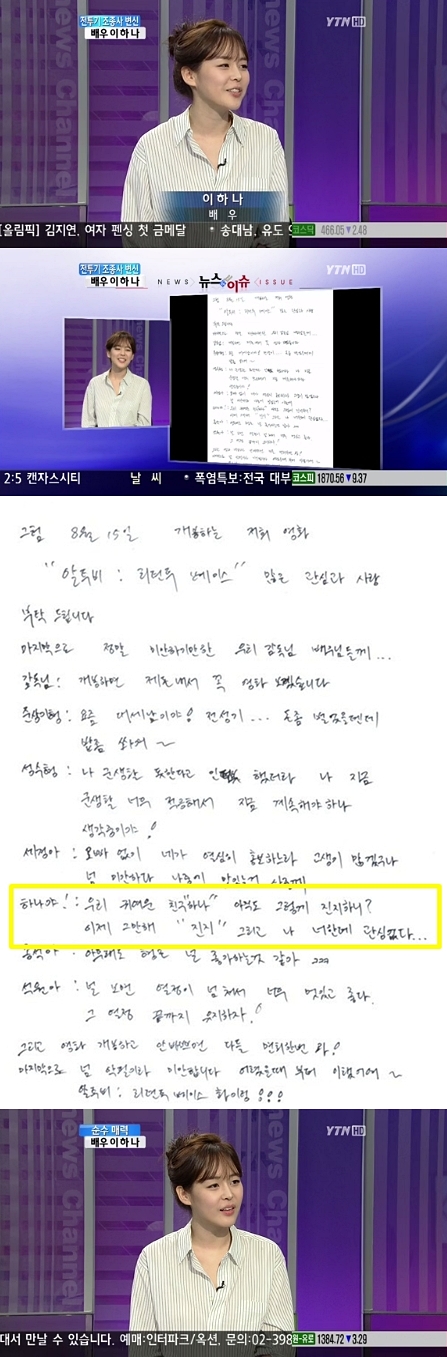 전투기 조종사 변신
배우 이하나
YTN HD
이하나
배 우
[올림픽] 김지연, 여자 펜싱 첫 금메달 * 송대남, 유도 코스닥 466.05▼2.48
전투기 조종사 변신
배우 이하나
NEWS 뉴스&이슈 ISSUE
YTN HD
2:5 캔자스시티 날 씨 * 폭염특보:전국 대부 코스피 1870.56▼9.37
그럼 8월 15일 개봉하는 저희 영화
"알투비 : 리턴투 베이스" 많은 관심과 사랑
부탁 드립니다
마지막으로 정말 미안하기만한 우리 감독님 배우님들께...
감독님! 개봉하면 제돈내서 꼭 영화 보겠습니다
준상이형 : 요즘 대세남이야! 전성기... 돈좀 벌었을텐데
밥좀 쏴요 ~
성수형 : 나 군생활 못한다고 했더라 나 지금
군생활 너무 적응해서 지금 계속해야 하나
생각중이야!
세경아 : 오빠 없이 네가 열심히 홍보하느라 고생이 많겠구나
넘 미안하다 나중에
하나야! : 우리 귀여운 친구 "하나" 아직도 그렇게 진지하니?
이제 그만해 "진지" 그리고 나 너한테 관심없다...
종석아 : 아무래도 형은 널 좋아하는것 같아 ㅋㅋㅋ
석원아 : 널 보면 열정이 넘쳐서 너무 멋있고 좋다.
그 열정 끝까지 유지하자!
그리고 영화 개봉하고 안바쁘면 다들 면회한번 와!
마지막으로 넘 악필이라 미안합니다 어렸을때 부터 이랬어여 ~
알투비 : 리턴투 베이스 화이팅!!!
순수 매력
배우 이하나
YTN HD
대서 만날 수 있습니다. 예매:인터파크/옥션, 문의:02-398 원-유로 1384.72▼3.29